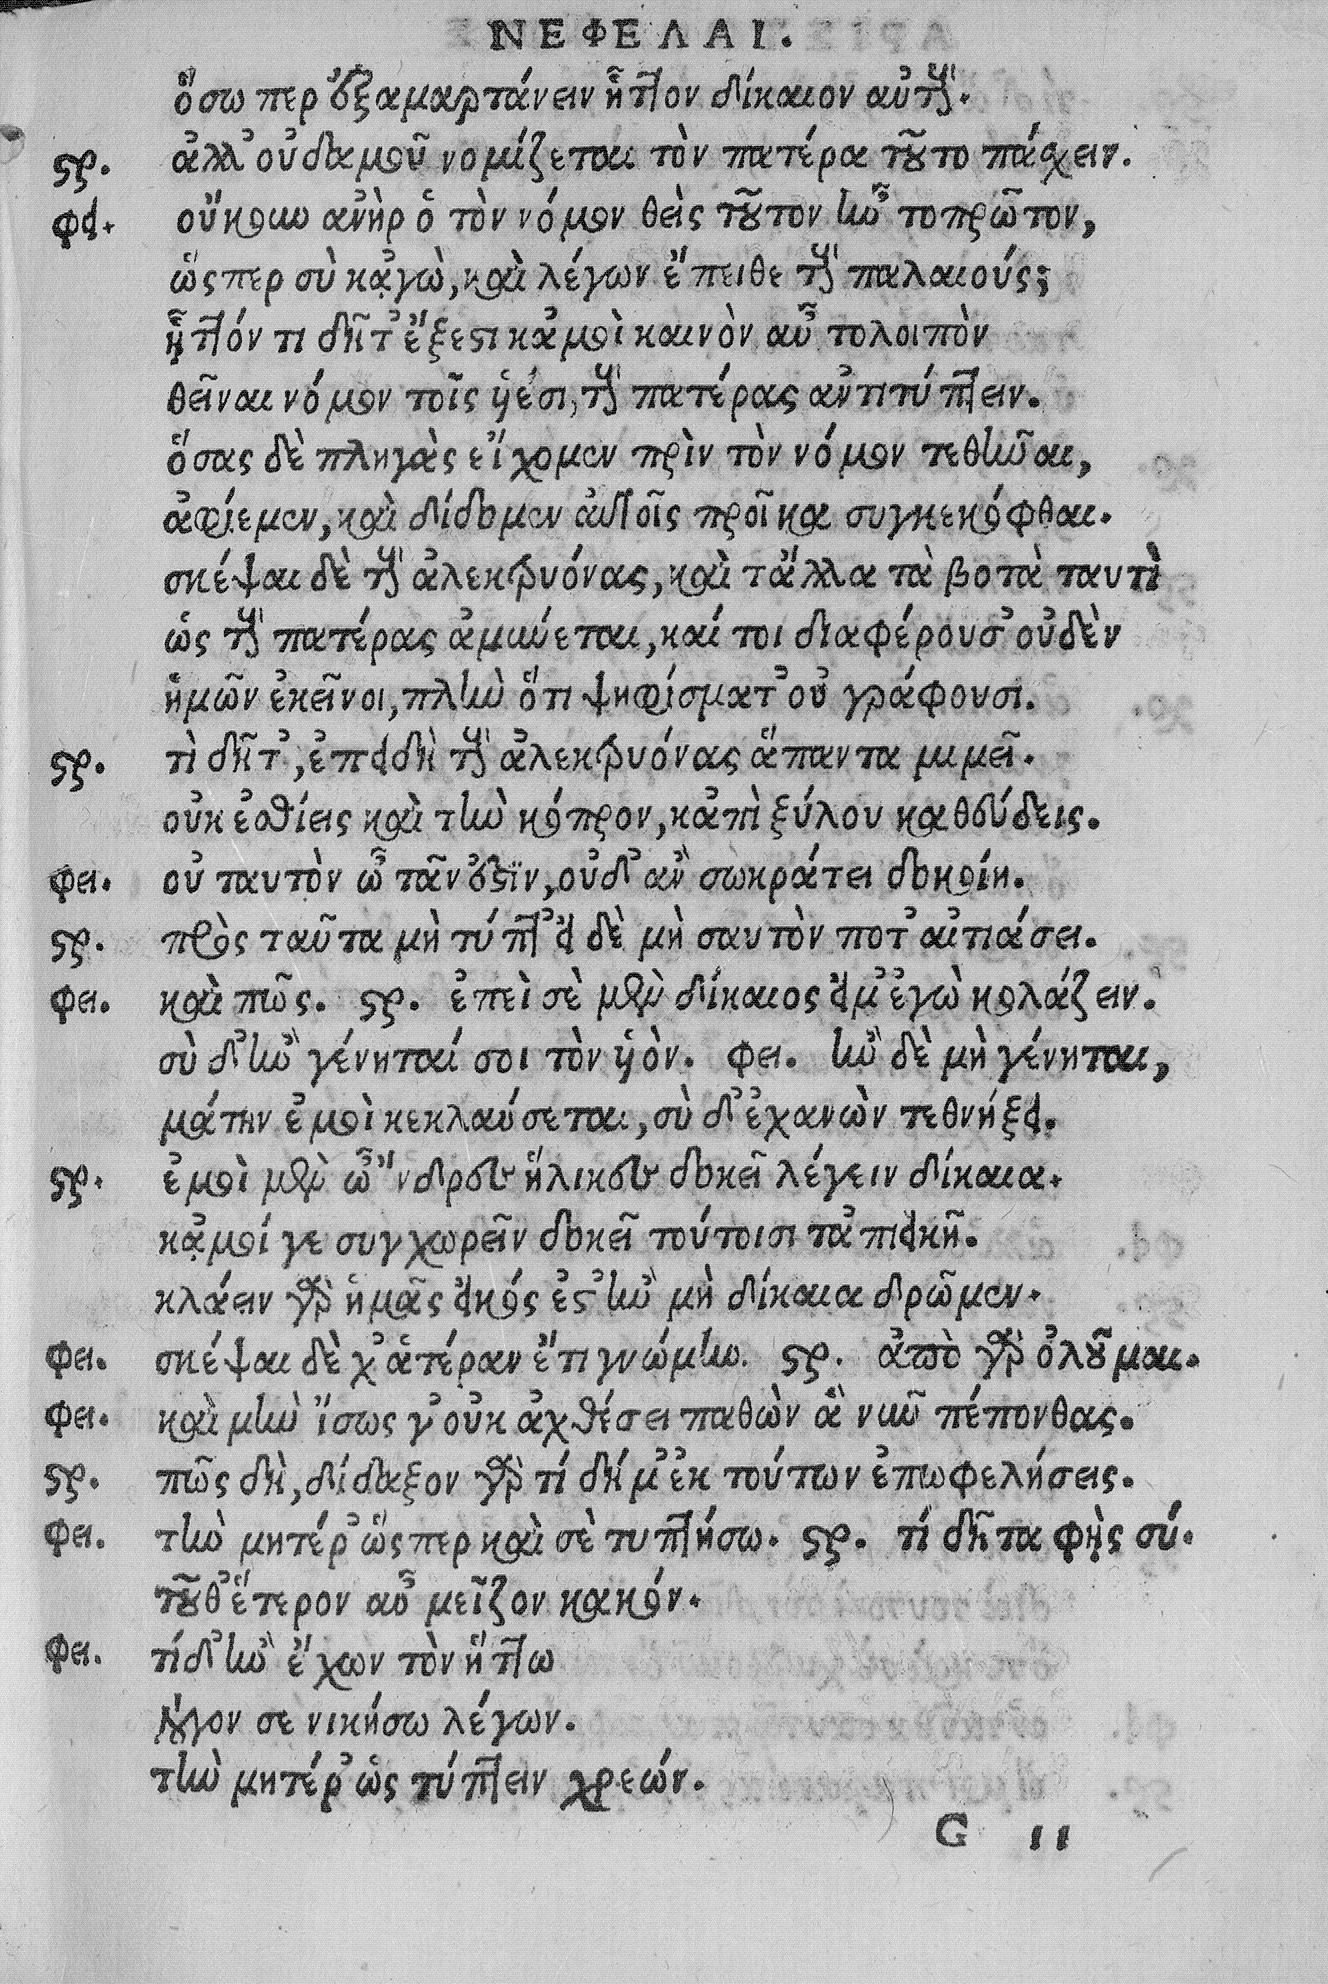 ΝΕΦΕΛΑΙ.
ὅσω περ ἐξαμαρτάνειν ἧττον δίκαιον αὐτούς.
ϛρ. ἀλλ' οὐδαμοῦ νομίζεται τὸν πατέρα τοῦτο πάσχειν.
φει. οὔκουν ἀνὴρ ὁ τὸν νόμον θεὶς τοῦτον ἦν τοπρῶτον,
ὥςπερ σὺ κᾀγὼ, καὶ λέγων ἔπειθε τοὺς παλαιούς;
ἧττόν τι δῆτ' ἔξεστι κᾀμοὶ καινὸν αὖ τολοιπὸν
θεῖναι νόμον τοῖς ὑέσι, τοὺς πατέρας ἀντιτύπτειν.
ὅσας δὲ πληγὰς εἴχομεν πρὶν τὸν νόμον τεθῆναι,
ἀφίεμεν, καὶ δίδομεν αὐτοῖς προῖκα συγκεκόφθαι.
σκέψαι δὲ τοὺς ἀλεκτρυόνας, καὶ τἄλλα τὰ βοτὰ ταυτὶ
ὡς τοὺς πατέρας ἀμύνεται, καί τοι διαφέρουσ' οὐδὲν
ἡμῶν ἐκεῖνοι, πλὴν ὅτι ψηφίσματ' οὐ γράφουσι.
ϛρ. τὶ δῆτ', ἐπειδὴ τοὺς ἀλεκτρυόνας ἅπαντα μιμεῖ.
οὐκ ἐσθίεις καὶ τὴν κόπρον, κᾀπὶ ξύλου καθεύδεις.
φει. οὐ ταυτὸν ὦ τᾶν ἐστὶν, οὐδ' ἂν σωκράτει δοκοίη.
ϛρ. πρὸς ταῦτα μὴ τύπτ' εἰ δὲ μὴ σαυτὸν ποτ' αἰτιάσει.
φει. καὶ πῶς. ϛρ. ἐπεὶ σὲ μὲν δίκαιος εἰμ' ἐγὼ κολάζειν.
σὺ δ' ἢν γένηταί σοι τὸν ὑόν. φει. ἢν δὲ μὴ γένηται,
μάτην ἐμοὶ κεκλαύσεται, σὺ δ' ἐχανὼν τεθνήξει.
ϛρ. ἐμοὶ μὲν ὦ "νδρες ἥλικες δοκεῖ λέγειν δίκαια.
κᾀμοί γε συγχωρεῖν δοκεῖ τούτοισι τἀπιεικῆ.
κλάειν γὰρ ἡμᾶς εἰκός ἐστ' ἢν μὴ δίκαια δρῶμεν.
φει. σκέψαι δὲ χ' ἁτέραν ἔτι γνώμην. ϛρ. ἀπὸ γὰρ ὀλοῦμαι.
φει. καὶ μὴν ἴσως γ' οὐκ ἀχθέσει παθὼν ἃ νῦν πέπονθας.
ϛρ. πῶς δὴ, δίδαξον γὰρ τί δή μ' ἐκ τούτων ἐπωφελήσεις.
φει. τὴν μητέρ' ὥςπερ καὶ σὲ τυπτήσω. ϛρ. τί δῆτα φῂς σύ.
τοῦθ' ἕτερον αὖ μεῖζον κακόν.
φει. τί δ' ἢν ἔχων τὸν ἥττω
λόγον σε νικήσω λέγων.
τὴν μητέρ' ὡς τύπτειν χρεών.
G ıı